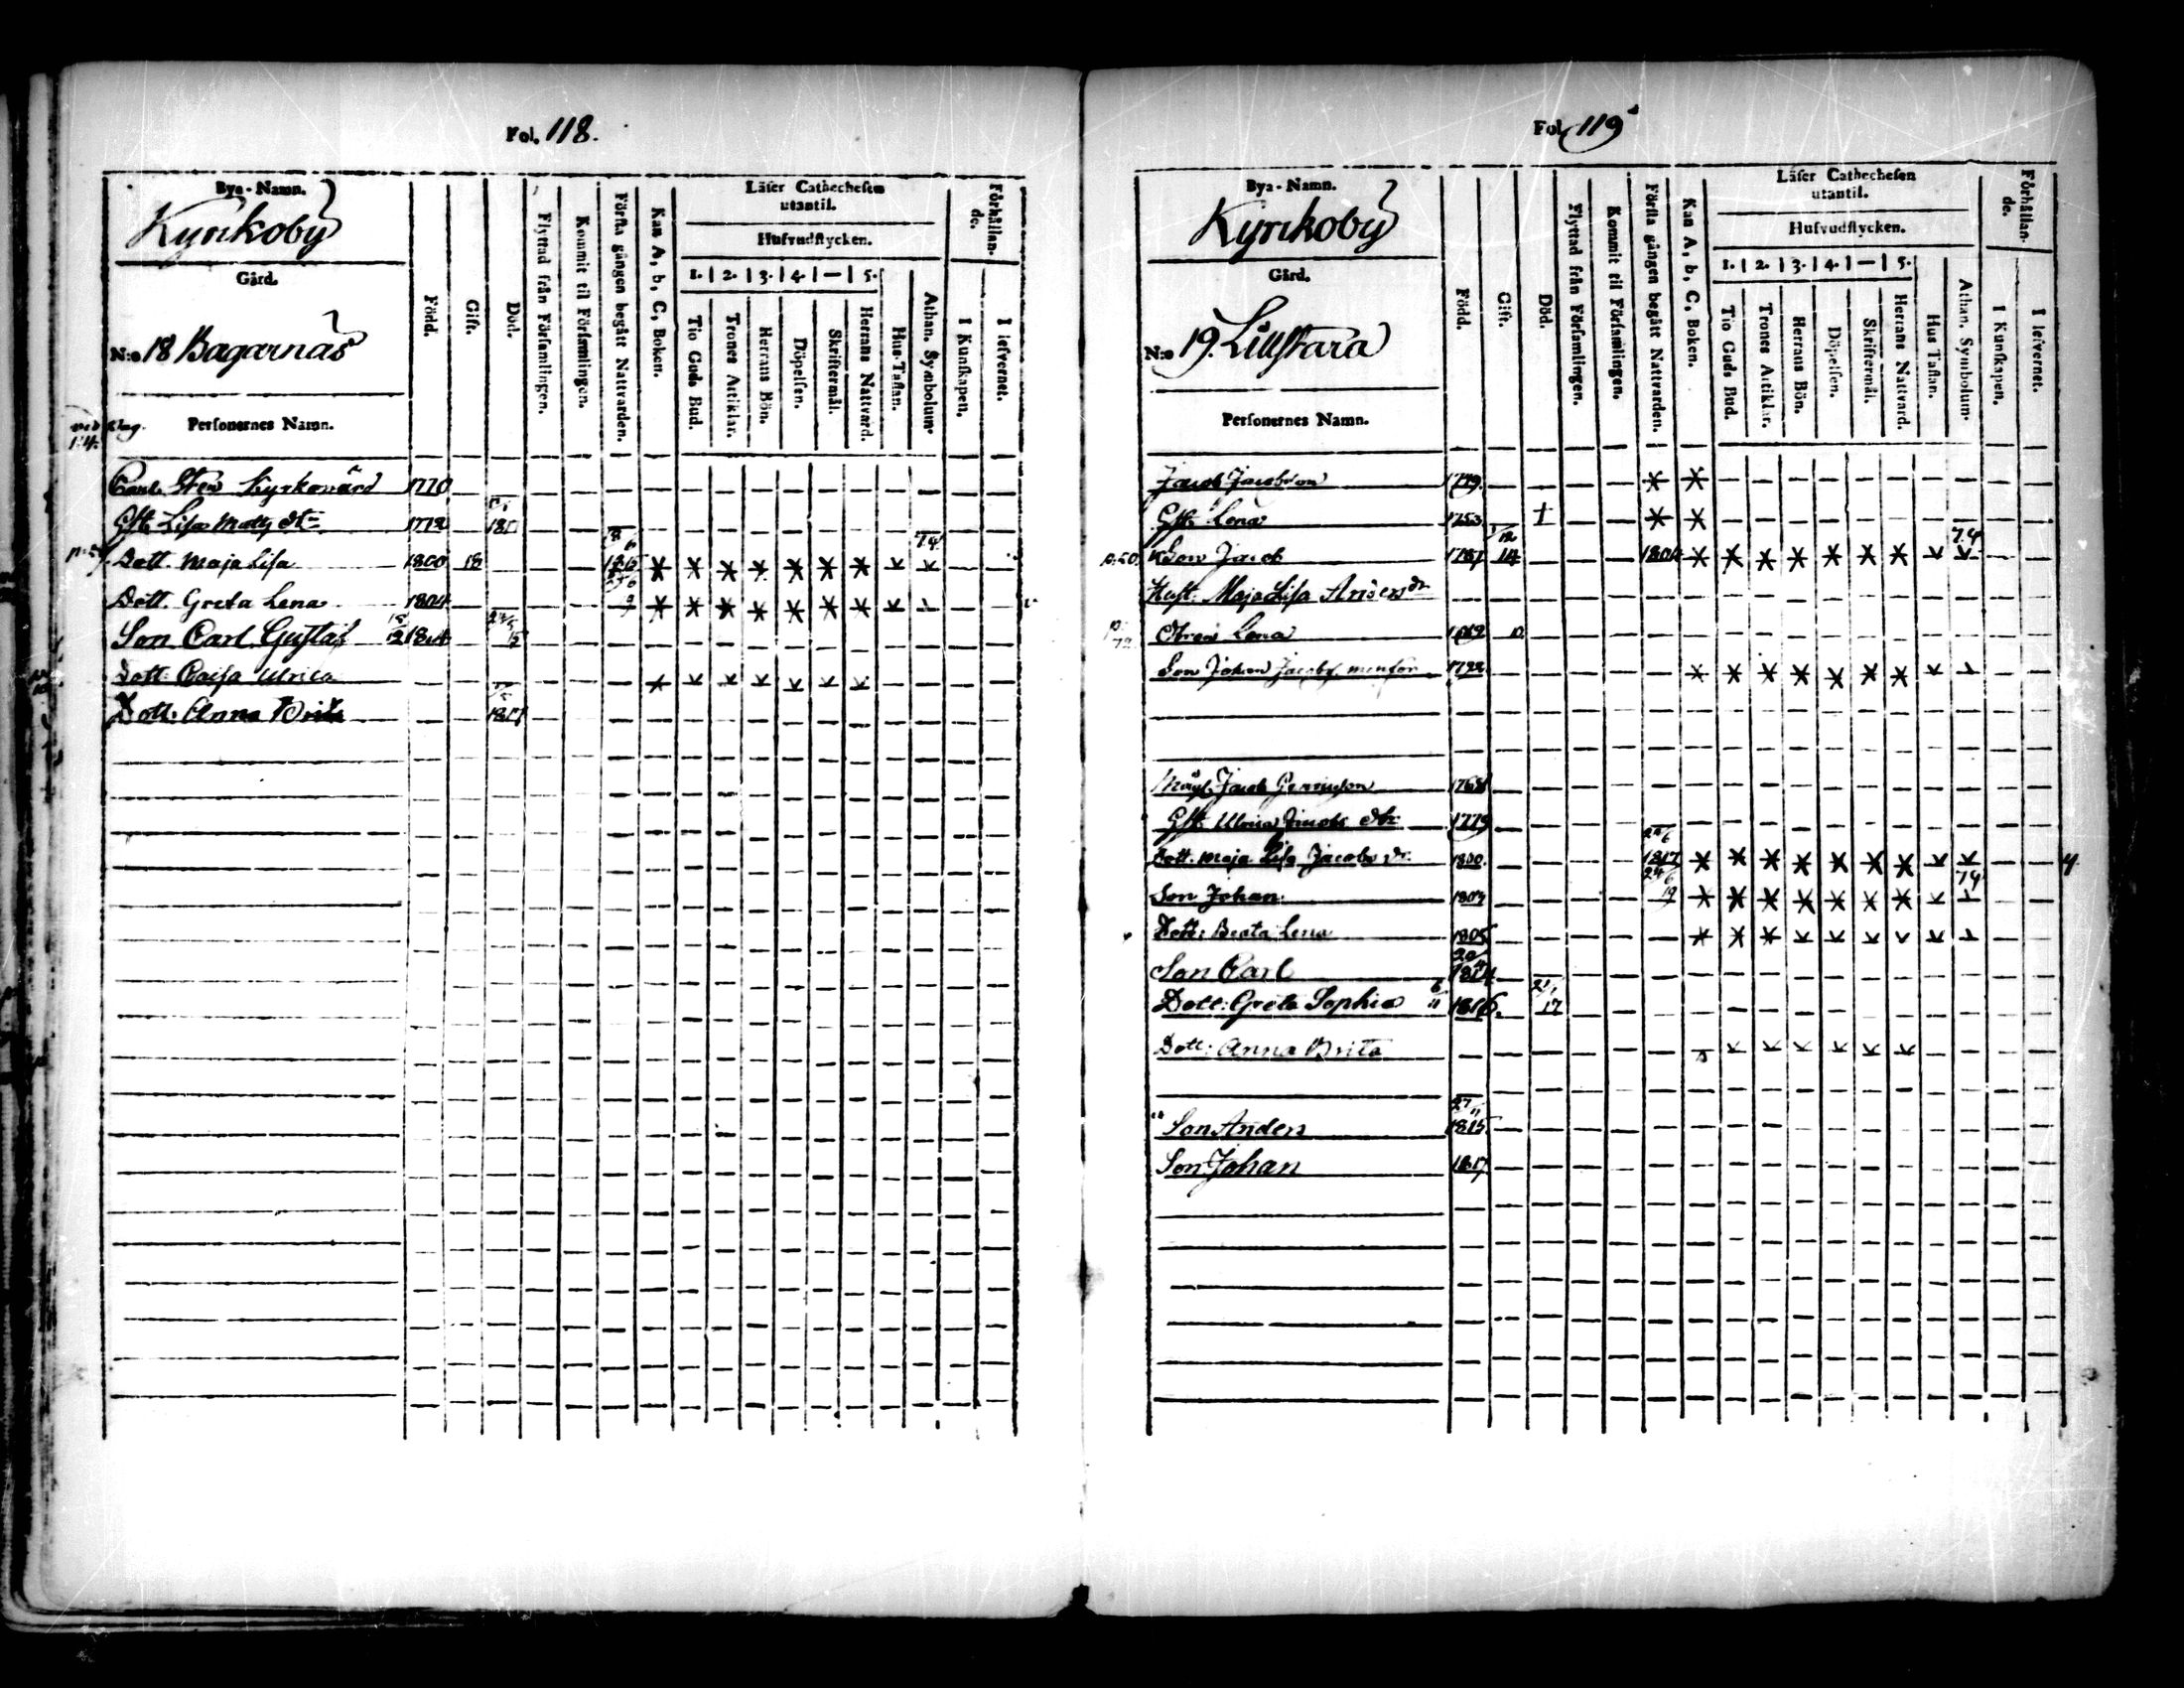 Fol. 118.
Bya-Namn.
Kyrkoby
Gård.
N:o 18 Bagarnäs
Personernes Namn.
Född.
Gift.
Död.
Flyttad från Församlingen.
Kommit til Församlingen.
Första gången begått Nattvarden.
Kan A, b, C, Boken.
Läser Cathechesen utantil.
Hufvudstycken.
1. 2. 3. 4. — 5.
Tio Guds Bud.
Trones Artiklar.
Herrans Bön.
Döpelsen.
Skriftermål.
Herrans Nattvard.
Hus-Taflan.
Athan. Symbolum.
Förhållan-de.
I Kunskapen.
I lefvernet.
Carl Sten Kyrkovärd 1770
Gst. Lisa Matts dtr 1772
Dott. Maja Lisa 1800 18
Dott. Greta Lena 1804
Son Carl Gustaf 1814 15
Dott: Caisa Ulrica
Dott: Anna Brita
Fol. 119
Bya-Namn.
Kyrckoby
Gård.
N:o 19. Lillstara
Personernes Namn.
Född.
Gift.
Död.
Flyttad från Församlingen.
Kommit til Församlingen.
Första gången begått Nattvarden.
Kan A, b, C, Boken.
Läser Cathechesen utantil.
Hufvudstycken.
1. 2. 3. 4. — 5.
Tio Guds Bud.
Trones Artiklar.
Herrans Bön.
Döpelsen.
Skriftermål.
Herrans Nattvard.
Hus Taflan.
Athan. Symbolum.
Förhållan-de.
I Kunskapen.
I lefvernet.
Jacob Jacobson
Gst. Lena 1753
Son Jacob 1787 14 1804
Hust. Maja Lisa Anders dr
Lena
Son Johan Jacobs. 1792
Jacob
Gst. Ulrica Jacobs dtr 1779
Dott. Maja Lisa Jacobs dr. 1800. 1817
Son Johan 19
Dott: Beata Lena 1805
Son Carl 1814
Dott: Greta Sophia 1816. 17
Dott: Anna Brita
Son Anders 1815
Son Johan 1817